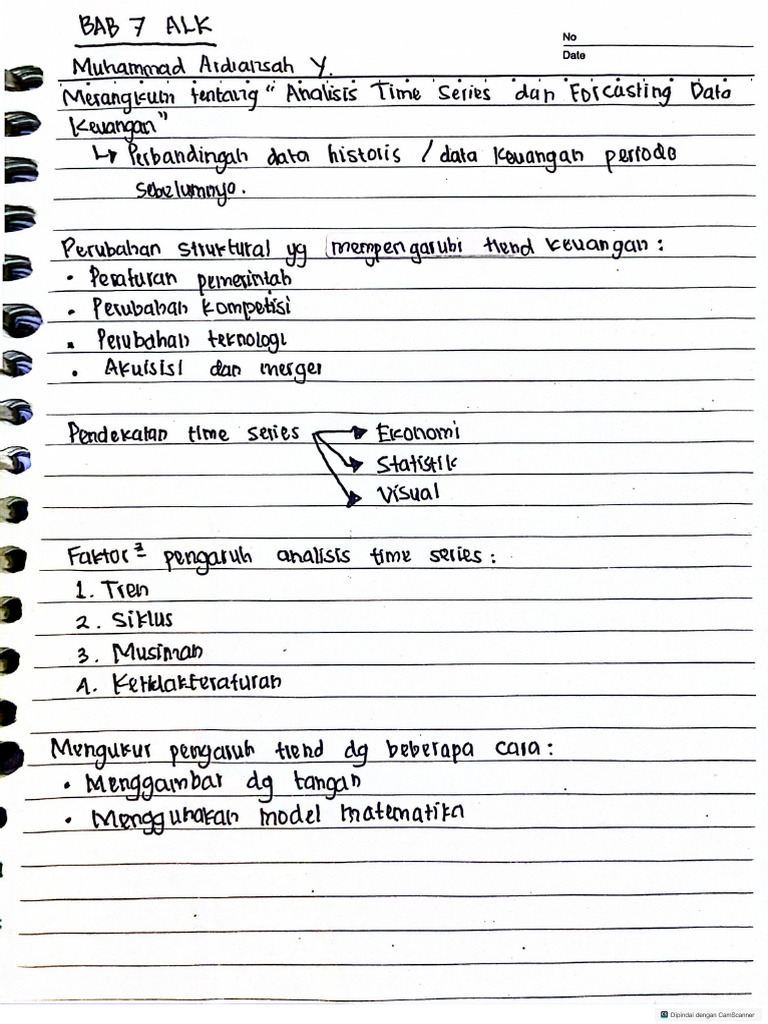 BAB 7 ALK
No
Date
Muhammad Ardiansah Y.
Merangkum tentang “Analisis Time Series dan Forcasting Data
Keuangan”
↳ Perbandingan data historis / data keuangan periode
sebelumnya.
Perubahan struktural yg mempengaruhi trend keuangan :
• Peraturan pemerintah
• Perubahan kompetisi
• Perubahan teknologi
• Akuisisi dan merger
Pendekatan time series → Ekonomi
→ Statistik
→ Visual
Faktor² pengaruh analisis time series :
1. Tren
2. Siklus
3. Musiman
4. Ketidakteraturan
Mengukur pengaruh trend dg beberapa cara :
• Menggambar dg tangan
• Menggunakan model matematika
Dipindai dengan CamScanner